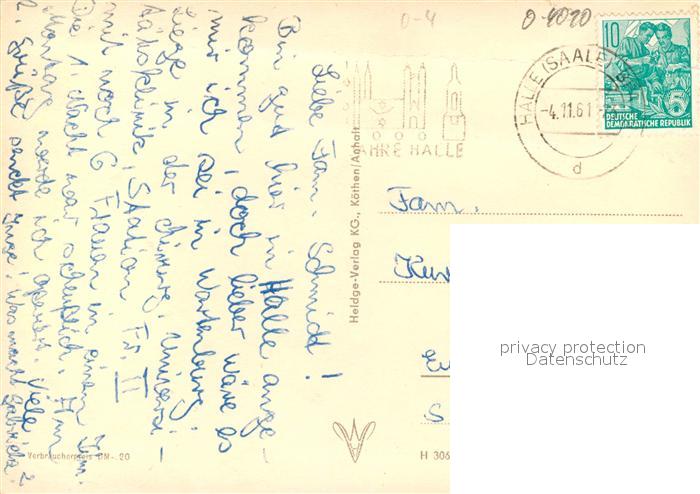 Liebe Fam. Schmidt!
Bin gut hier in Halle ange-
kommen, doch lieber wäre es
mir ich sei in Wartenburg.
Liege in der chirurg. Universi-
tätsklinik, Station Fr. II
mit noch 6 Frauen in einem Zim.
Die 1. Nacht war scheußlich. Am
Montag werde ich operiert. Viele
l. Grüße sendet Inge. Was macht Gabriela?
Verbraucherpreis DM -.20
Heldge-Verlag KG., Köthen/Anhalt
0-4
0-4020
HALLE (SAALE)
-4.11.61
d
JAHRE HALLE
10
DEUTSCHE
DEMOKRATISCHE REPUBLIK
5
Fam.
Kur
S
H 306
privacy protection
Datenschutz